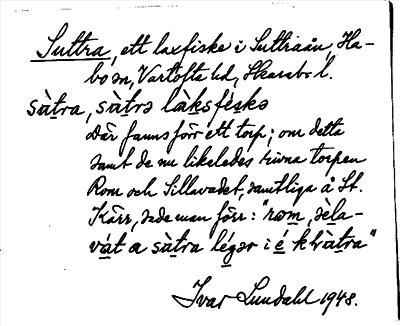 Suttra, ett laxfiske i Suttraån, Ha-
bo sn, Vartofta hd, Skarabs l.
sàt̲ra, sàt̲rə làk̲sfeskə
Där fanns förr ett torp; om detta
samt de nu likaledes rivna torpen
Rom och Sillavadet, samtliga å St.
Kärr, sade man förr: "rom, sèla-
vát a sàt̲ra légər i é kvàt̲ra"
Ivar Lundahl 1948.